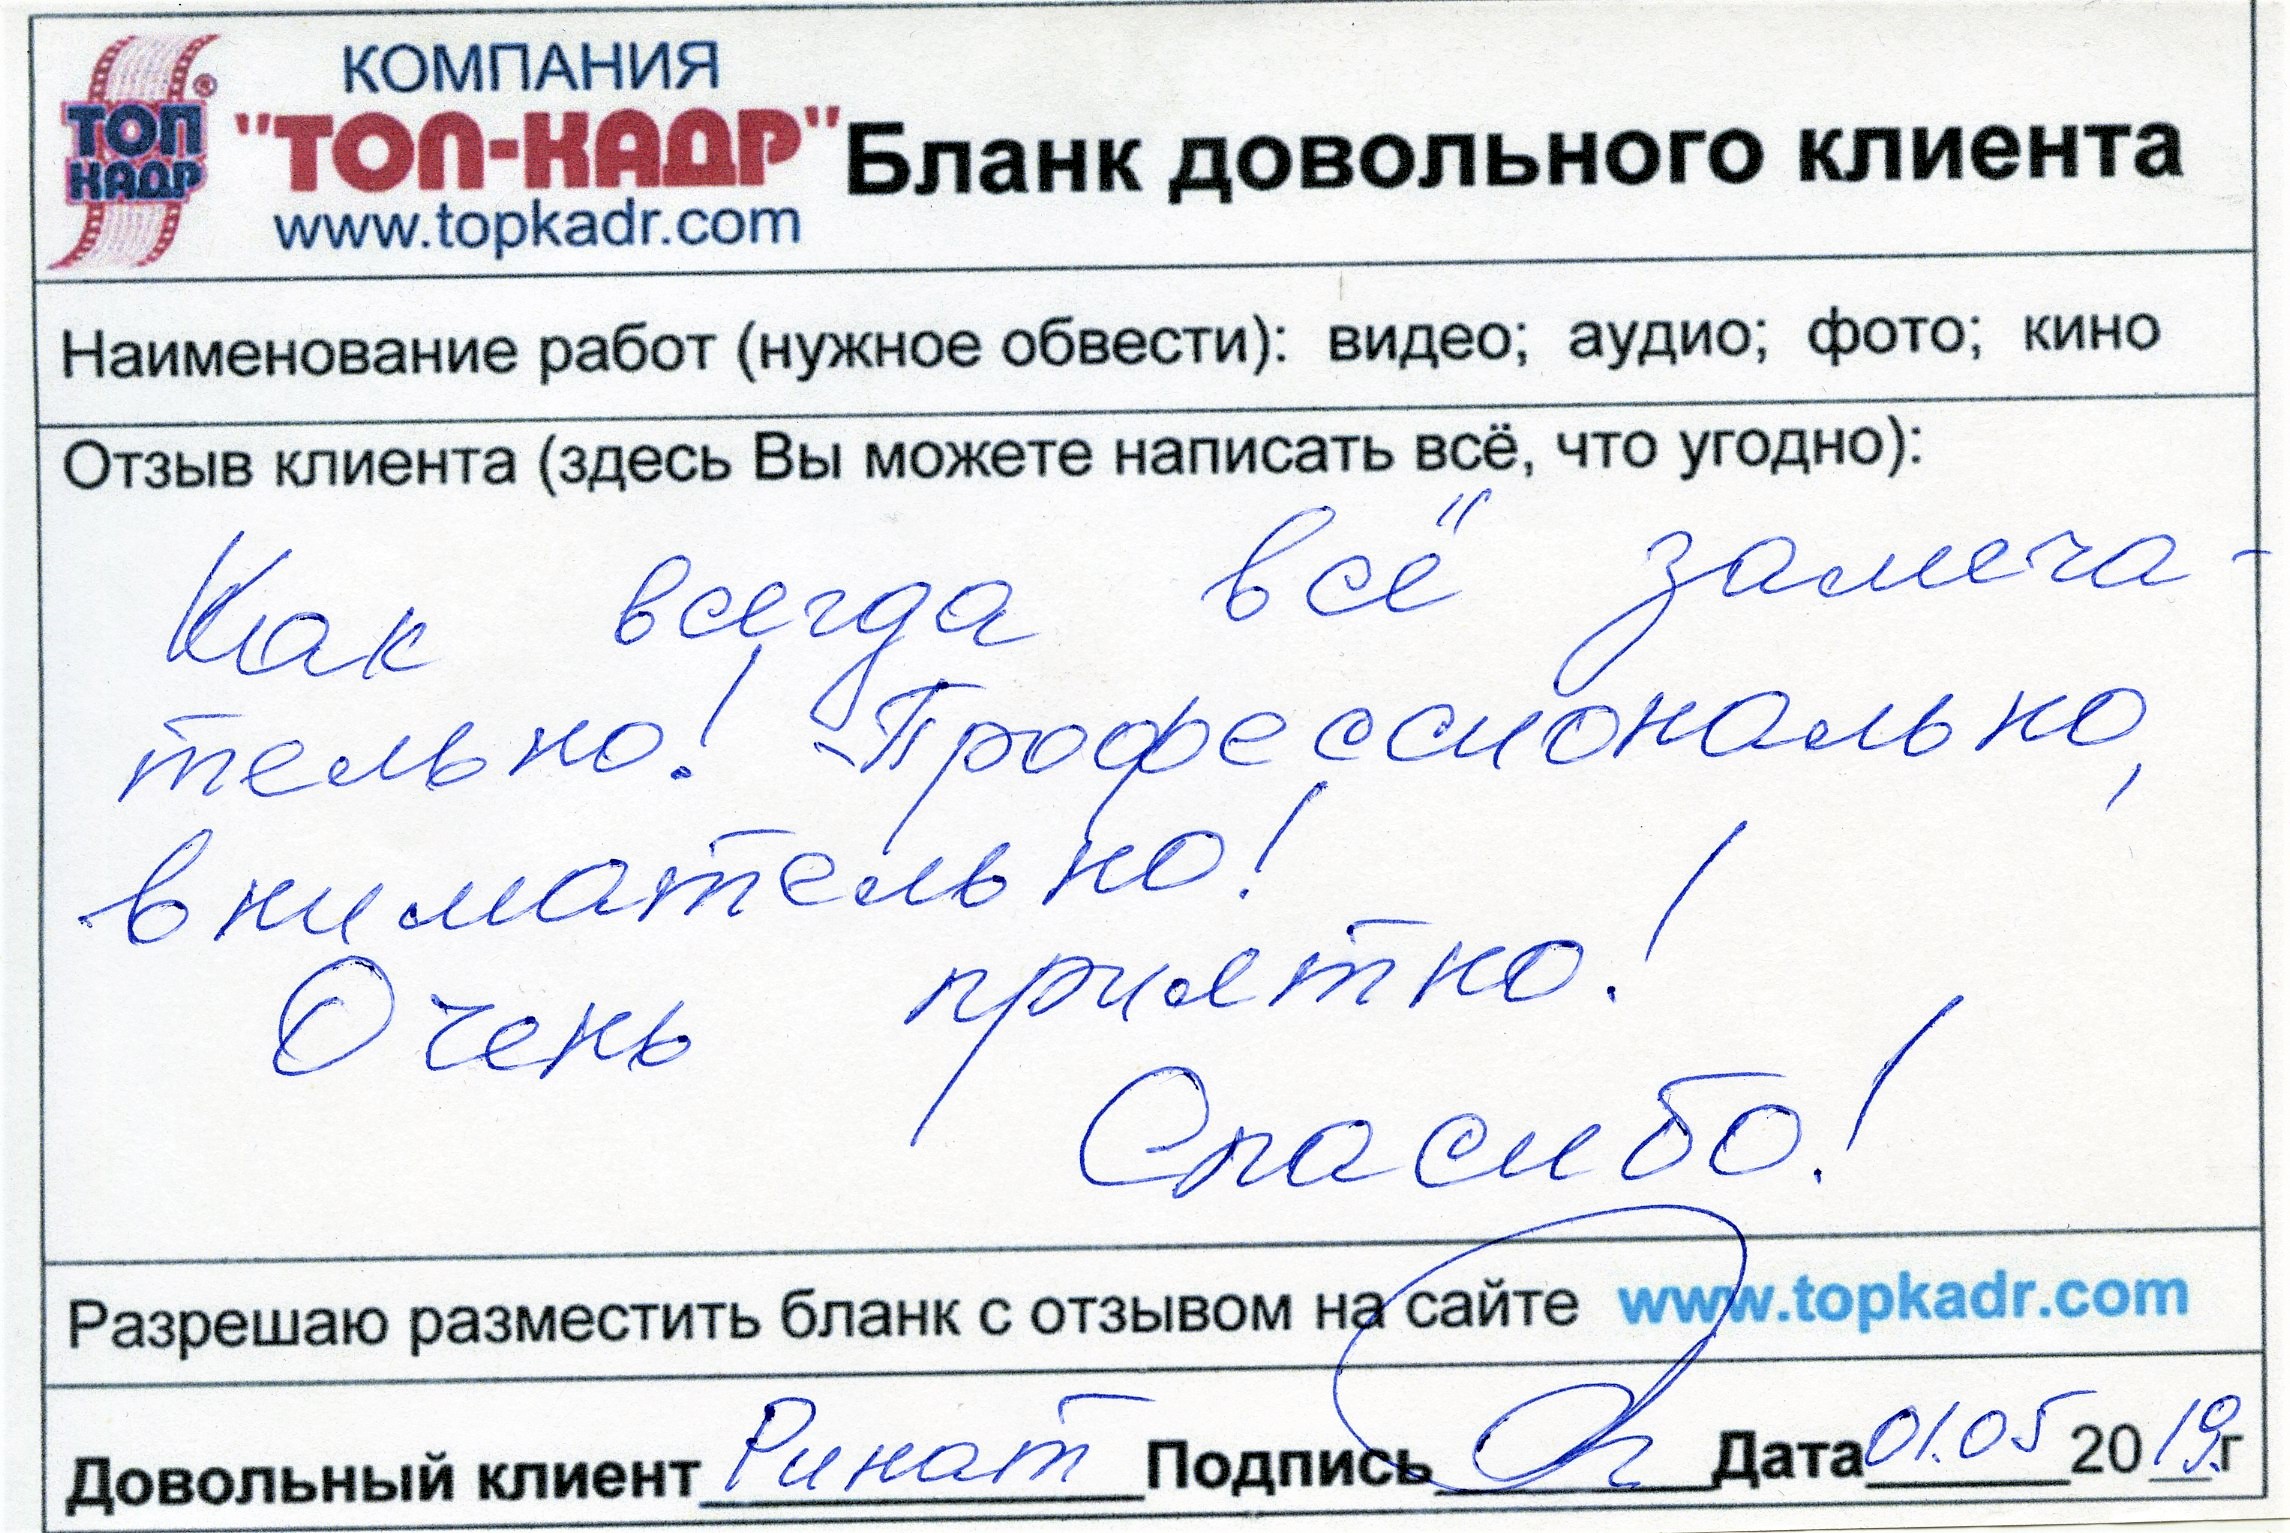 КОМПАНИЯ
ТОП КАДР ®
"ТОП-КАДР" Бланк довольного клиента
www.topkadr.com
Наименование работ (нужное обвести): видео; аудио; фото; кино
Отзыв клиента (здесь Вы можете написать всё, что угодно):
Как всегда всё замеча-
тельно! Профессионально,
внимательно!
Очень приятно!
Спасибо!
Разрешаю разместить бланк с отзывом на сайте www.topkadr.com
Довольный клиент Ринат Подпись Дата 01.05 2019.г